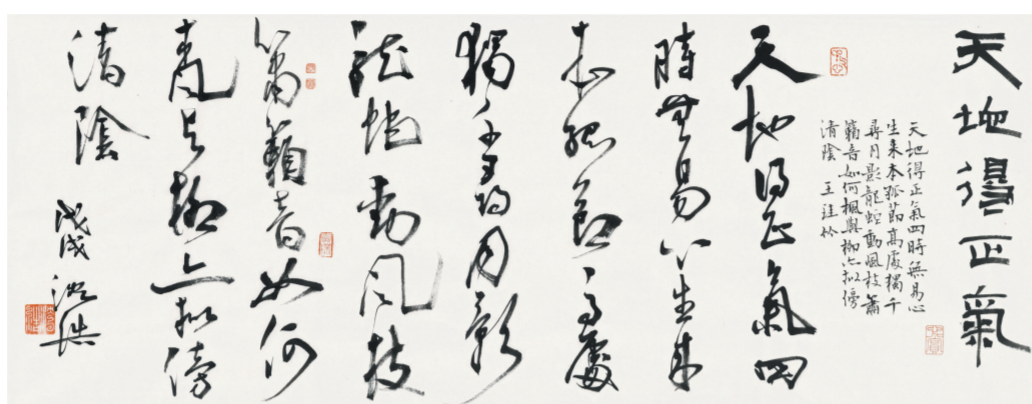 天地得正氣
天地得正氣四時無易心
生来本孤節高處獨千
尋月影龍蛇動風枝簫
籟音如何楓與柳亦拟傍
清陰 王淮竹
天地得正氣四
時無易心生来
本孤節高處
獨千尋月影
龍蛇動風枝
簫籟音如何
楓與柳亦拟傍
清陰 戊戌